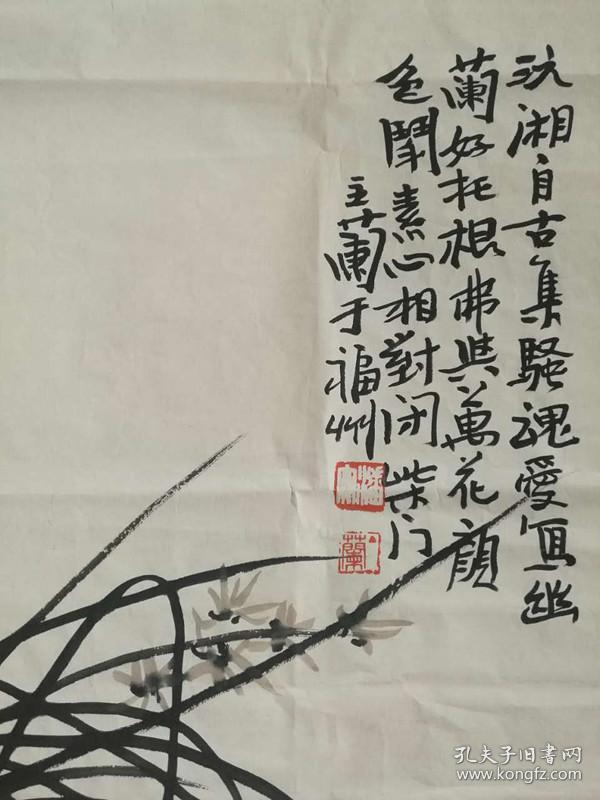 沅湘自古集騷魂愛寫幽
蘭好托根弗與萬花顔
色鬥素心相對闭柴门
主蘭于福州
蘭
孔夫子旧书网
www.kongfz.com